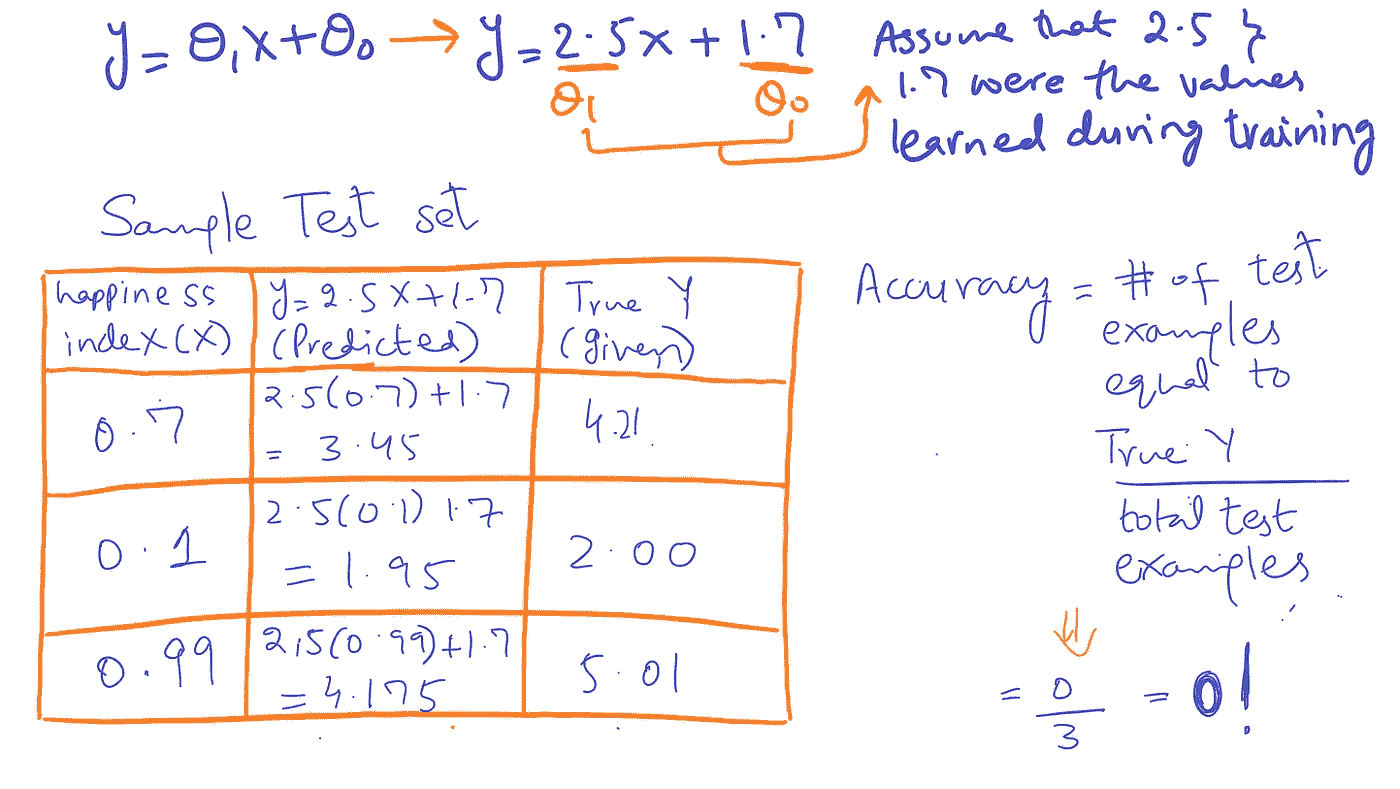 y = θ₁x + θ₀ → y = 2.5x + 1.7
θ₁ θ₀
Assume that 2.5 &
1.7 were the values
learned during training
Sample Test set
happiness
index (X)
y = 2.5X + 1.7
(Predicted)
True Y
(given)
0.7
2.5(0.7) + 1.7
= 3.45
4.21
0.1
2.5(0.1) 1.7
= 1.95
2.00
0.99
2.5(0.99) + 1.7
= 4.175
5.01
Accuracy = # of test
examples
equal to
True Y
total test
examples
= 0/3 = 0!